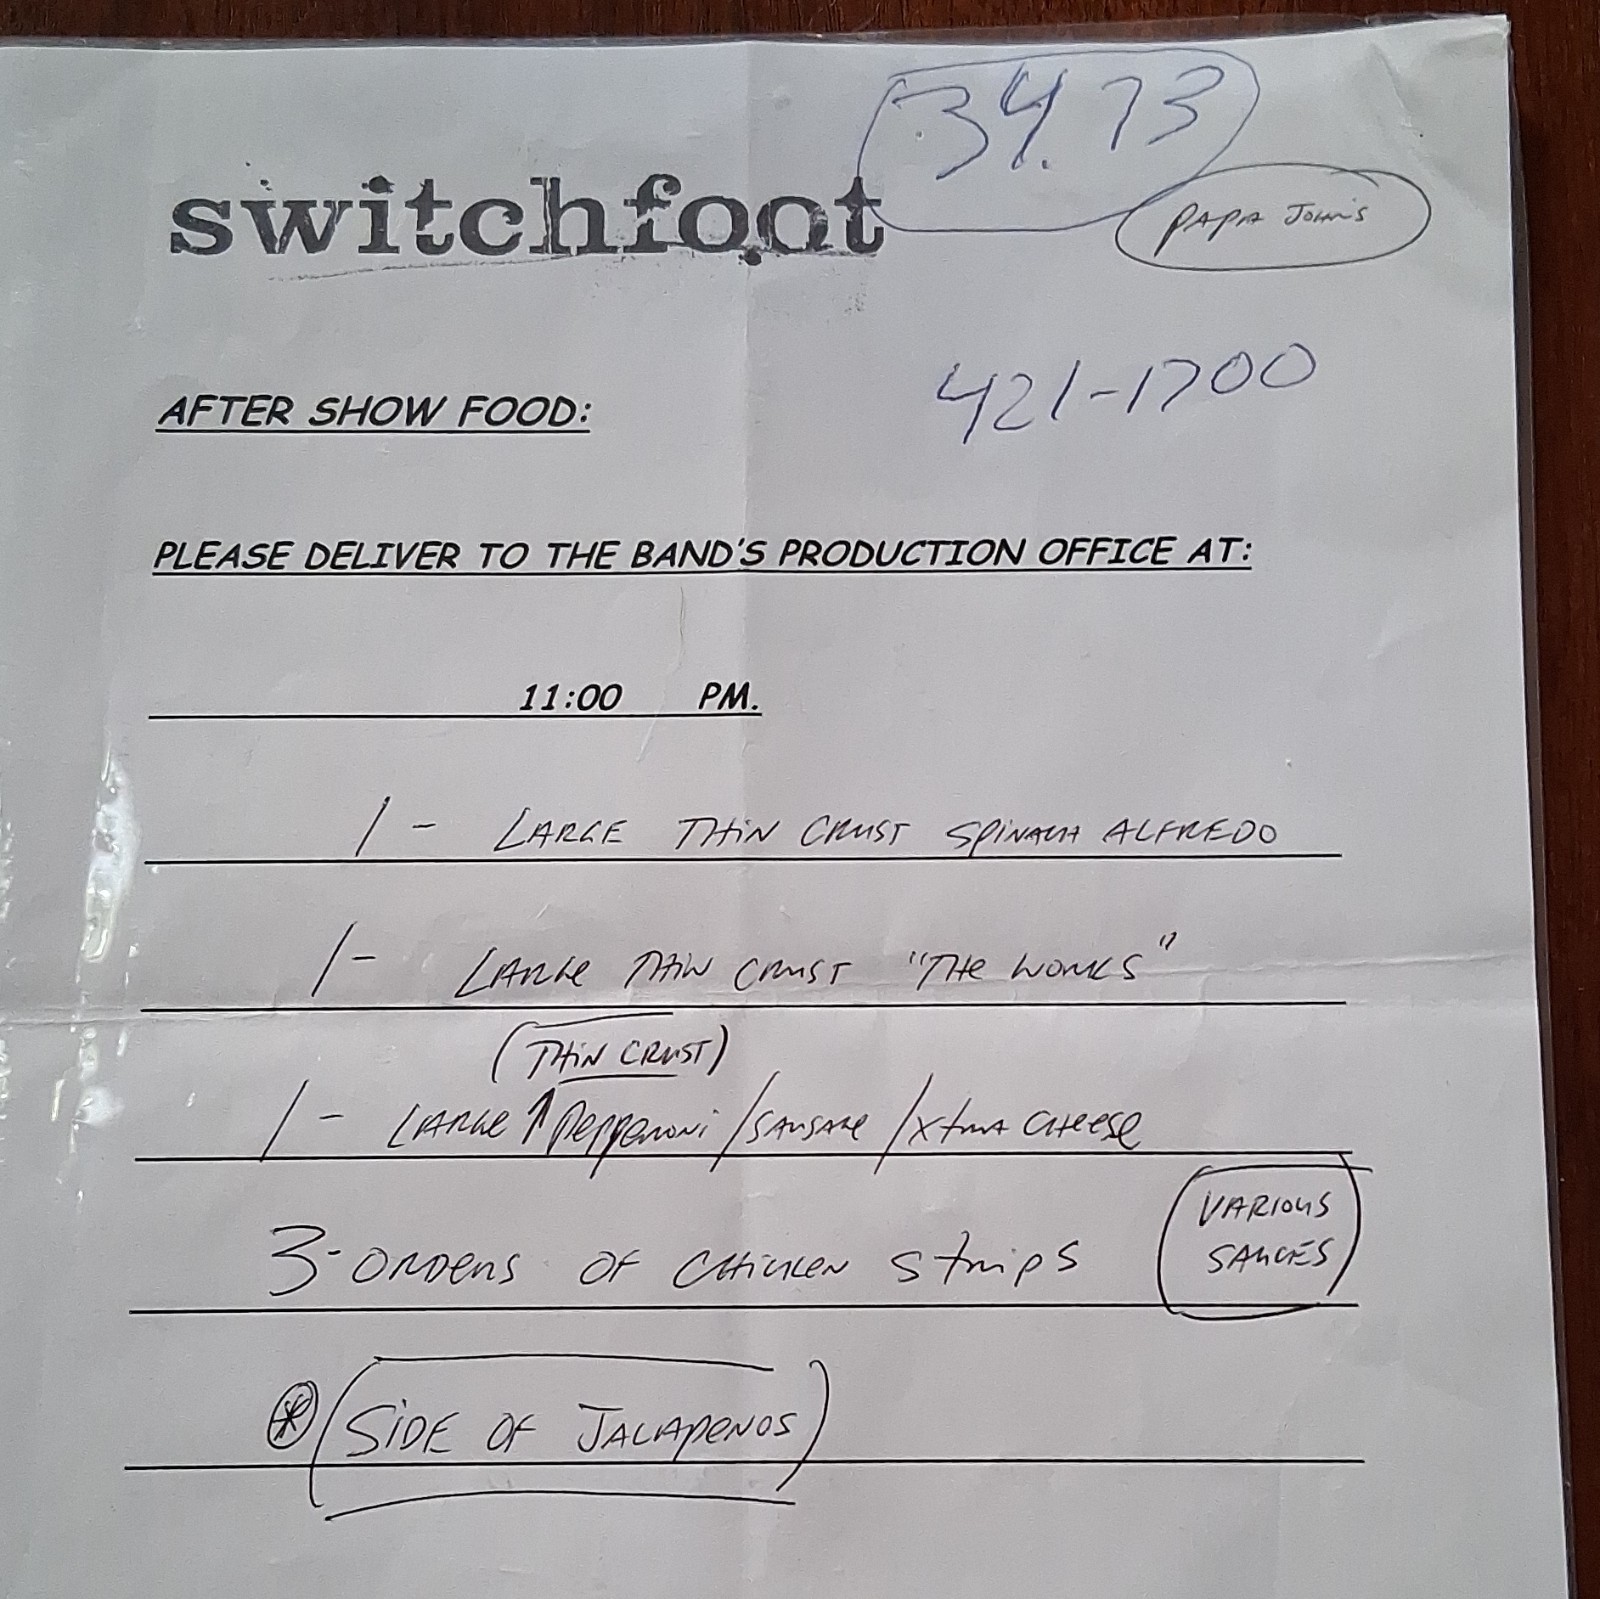 34.73
switchfoot
PAPA JOHN'S
421-1700
AFTER SHOW FOOD:
PLEASE DELIVER TO THE BAND'S PRODUCTION OFFICE AT:
11:00 PM.
1 - LARGE THIN CRUST SPINACH ALFREDO
1 - LARGE THIN CRUST "THE WORKS"
(THIN CRUST)
1 - LARGE ↑ Pepperoni / SAUSAGE / XtrA CHeese
3 - ORDERS OF CHICKEN StripS
VARIOUS
SAUCES
* (SIDE OF JALAPENOS)